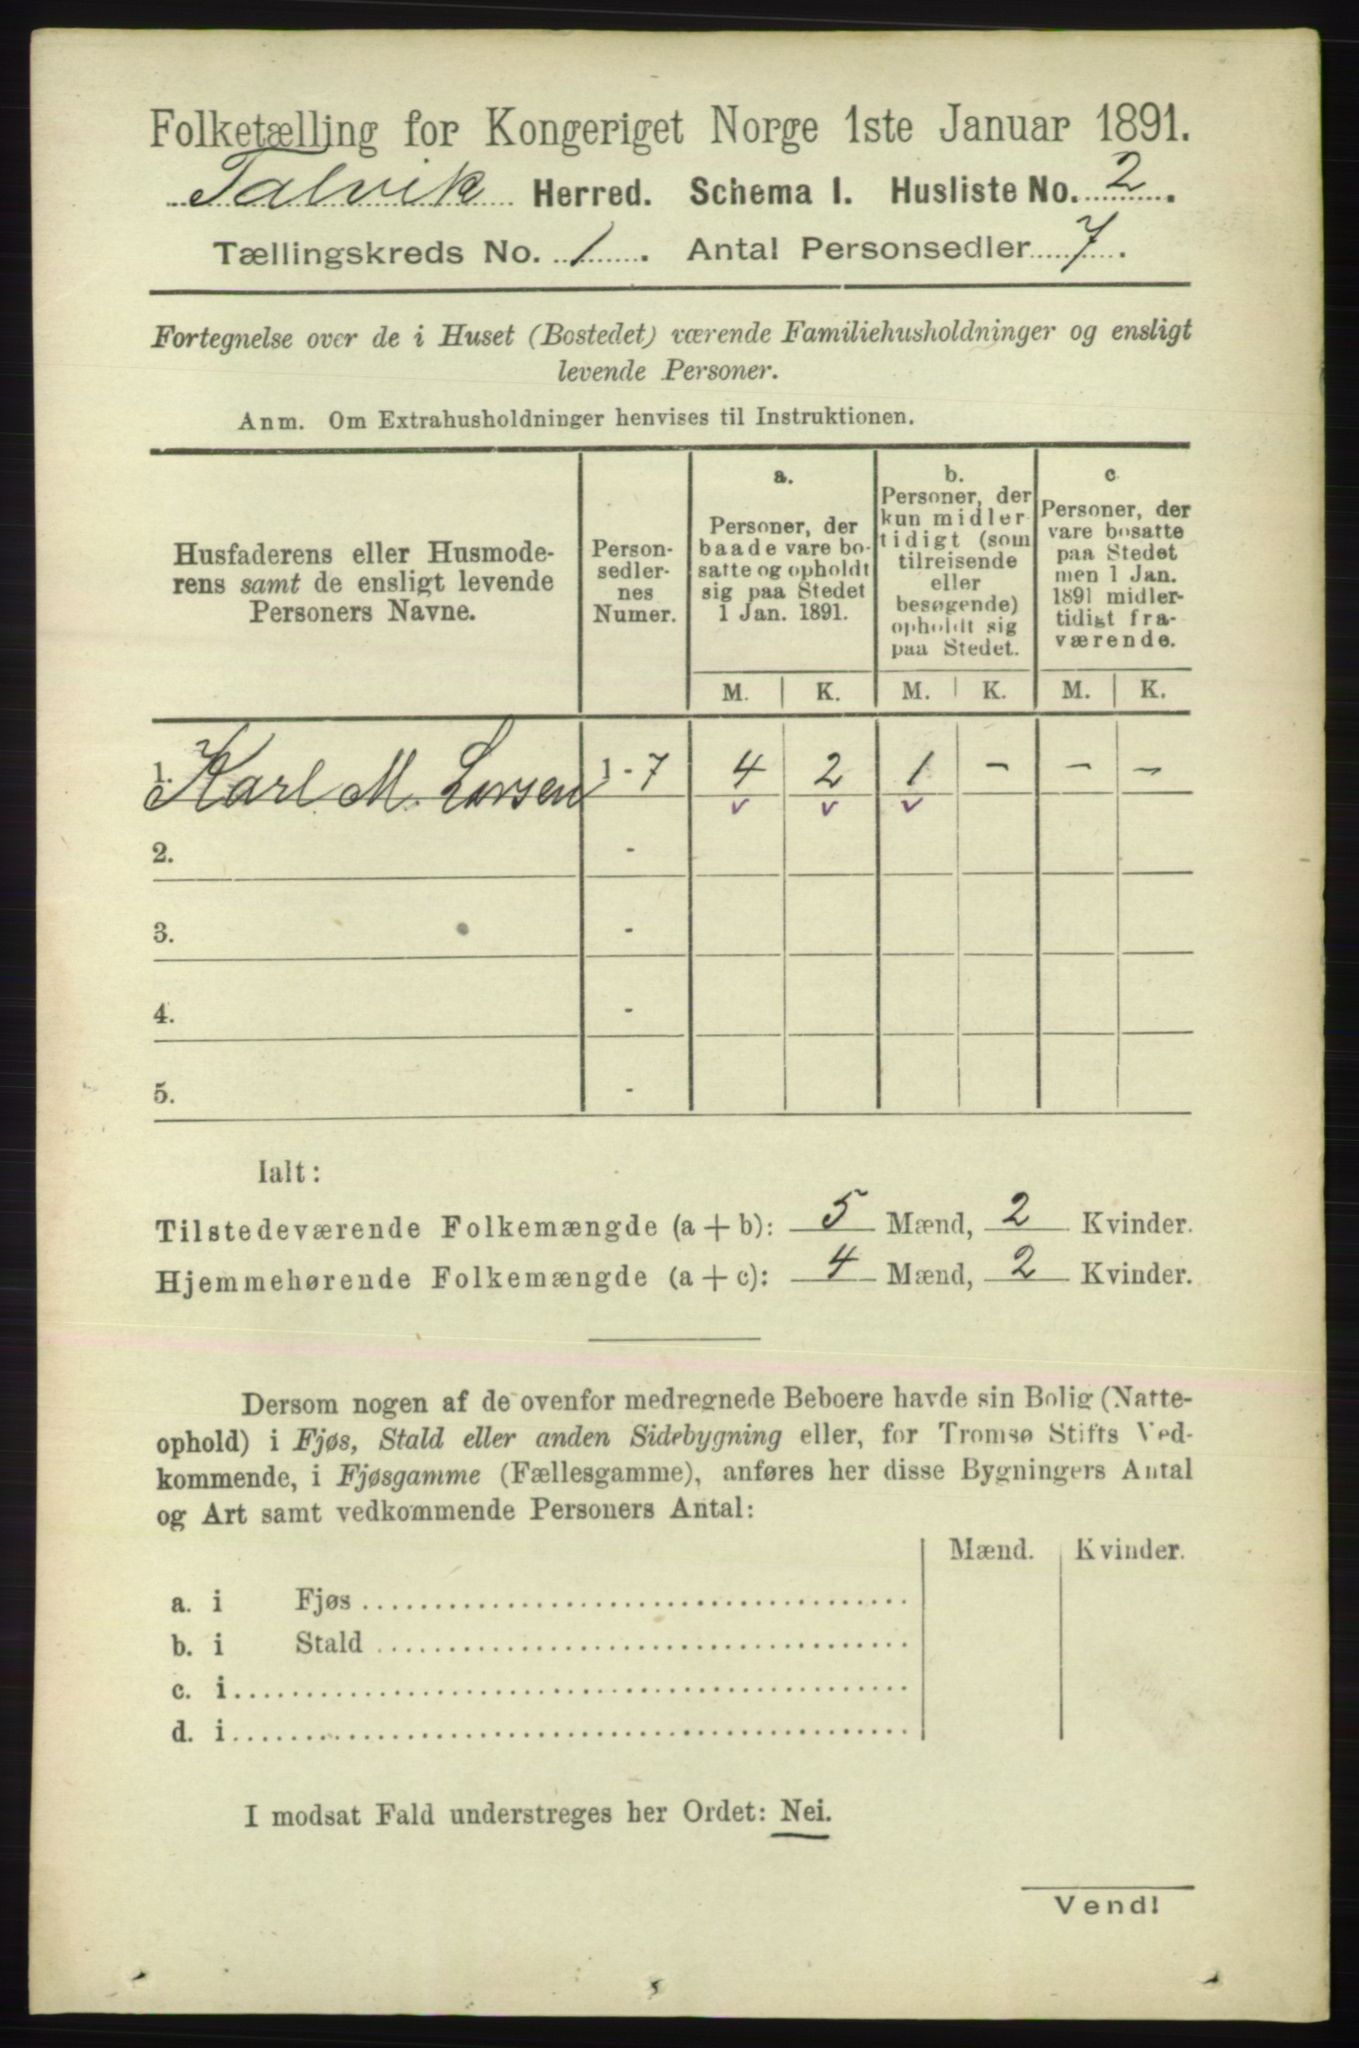 Folketælling for Kongeriget Norge 1ste Januar 1891.
Talvik Herred. Schema I. Husliste No. 2.
Tællingskreds No. 1. Antal Personsedler 7.
Fortegnelse over de i Huset (Bostedet) værende Familiehusholdninger og ensligt
levende Personer.
Anm. Om Extrahusholdninger henvises til Instruktionen.
Husfaderens eller Husmode-
rens samt de ensligt levende
Personers Navne.
Person-
sedler-
nes
Numer.
a.
Personer, der
baade vare bo-
satte og opholdt
sig paa Stedet
1 Jan. 1891.
b.
Personer, der
kun midler
tidigt (som
tilreisende
eller
besøgende)
opholdt sig
paa Stedet.
c
Personer, der
vare bosatte
paa Stedet
men 1 Jan.
1891 midler-
tidigt fra-
værende.
M. K. M. K. M. K.
1. Karl M. Larsen 1-7 4 2 1 - - -
v v v
2. -
3. -
4. -
5. -
Ialt:
Tilstedeværende Folkemængde (a + b): 5 Mænd, 2 Kvinder.
Hjemmehørende Folkemængde (a + c): 4 Mænd, 2 Kvinder.
Dersom nogen af de ovenfor medregnede Beboere havde sin Bolig (Natte-
ophold) i Fjøs, Stald eller anden Sidebygning eller, for Tromsø Stifts Ved-
kommende, i Fjøsgamme (Fællesgamme), anføres her disse Bygningers Antal
og Art samt vedkommende Personers Antal:
Mænd. Kvinder.
a. i Fjøs
b. i Stald
c. i
d. i
I modsat Fald understreges her Ordet: Nei.
Vend!